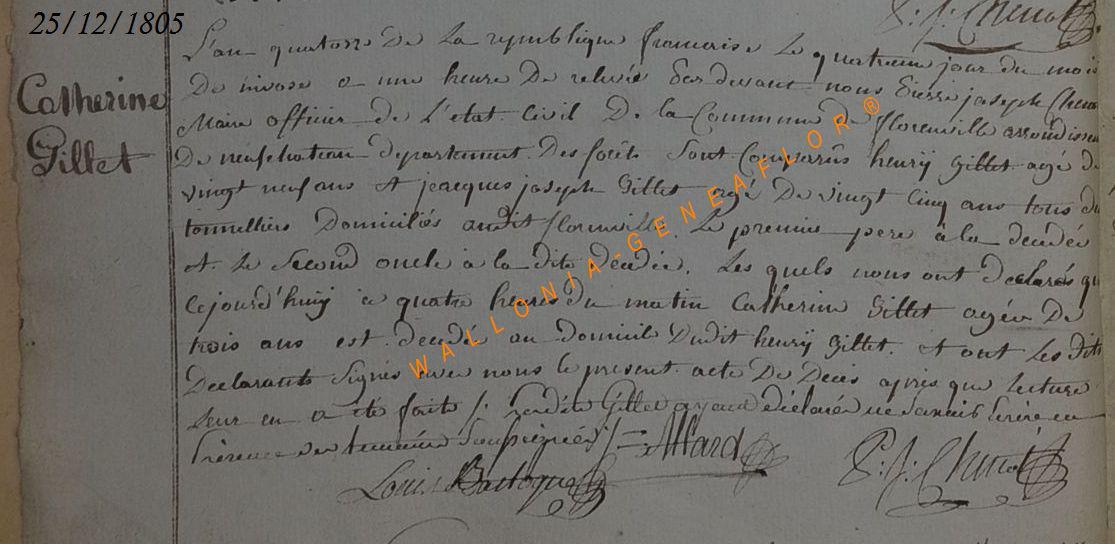 25/12/1805
P. J. Chenot
Catherine
Gillet
L'an quatorze De La republique francaise Le quatrieme jour du mois
De nivose a une heure De relevée Pardevant nous Pierre joseph Chenot
Maire officier de L'état Civil De la Commune de florenville arrondissem
De neufchateau departement Des forêts Sont Comparûs henrÿ Gillet agé de
vingt neuf ans et jacques joseph Gillet agé De vingt Cinq ans tous du
tonnelliers Domiciliés audit florenville Le premier pere à la decedée
et Le Second oncle à la dite decedée. Les quels nous ont declarés qu
cejourd'huÿ à quatre heures du matin Catherine Gillet agée De
trois ans est decedée au domicile Dudit henrÿ Gillet. et ont Les dits
Declarants Signés avec nous le present acte De Decès après que Lecture
Leur en a été faite /. Gillet ayant déclarés ne savoir Ecrire en
Présence des temoins Soussignés /= Allard
Louis Bastogne P. J. Chenot
WALLONIA-GENEAFLOR ®